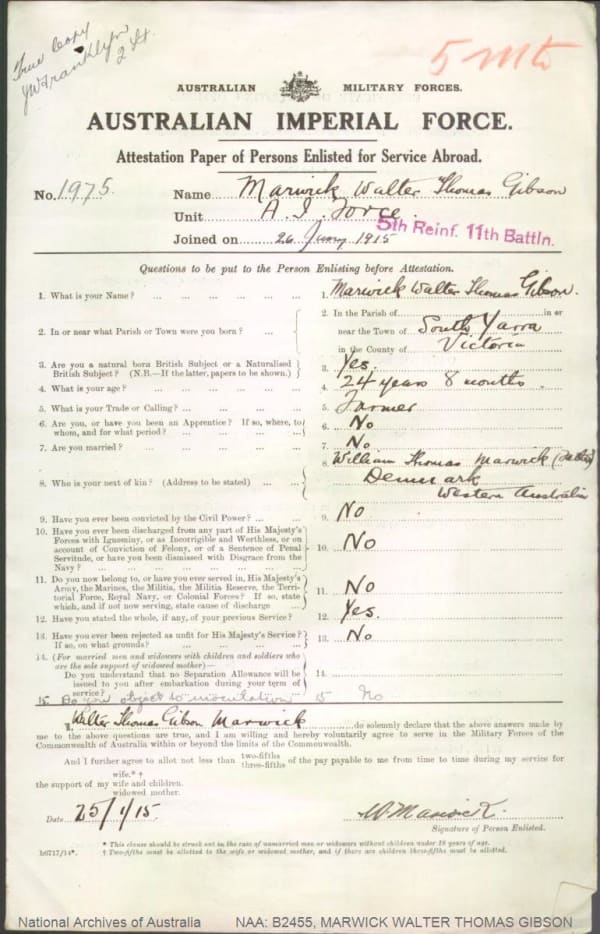 True Copy
JW Franklyn
2 Lt.
5 Mts
AUSTRALIAN MILITARY FORCES.
AUSTRALIAN IMPERIAL FORCE.
Attestation Paper of Persons Enlisted for Service Abroad.
No. 1975. Name Marwick Walter Thomas Gibson
Unit A. I. Force.
5th Reinf. 11th Battln.
Joined on 26 Jany 1915
Questions to be put to the Person Enlisting before Attestation.
1. What is your Name? ... ... ... ... ... 1. Marwick Walter Thomas Gibson.
2. In or near what Parish or Town were you born? ... ... 2. In the Parish of in or
near the Town of South Yarra
in the County of Victoria
3. Are you a natural born British Subject or a Naturalised
British Subject? (N.B.—If the latter, papers to be shown.) 3. Yes.
4. What is your age? ... ... ... ... ... 4. 24 years 8 months.
5. What is your Trade or Calling? ... ... ... ... 5. Farmer
6. Are you, or have you been an Apprentice? If so, where, to
whom, and for what period? ... ... ... ... 6. No
7. Are you married? ... ... ... ... ... 7. No
8. Who is your next of kin? (Address to be stated) ... ... 8. William Thomas Marwick (father)
Denmark
Western Australia
9. Have you ever been convicted by the Civil Power? ... ... 9. No
10. Have you ever been discharged from any part of His Majesty's
Forces with Ignominy, or as Incorrigible and Worthless, or on
account of Conviction of Felony, or of a Sentence of Penal
Servitude, or have you been dismissed with Disgrace from the
Navy? ... ... ... ... ... 10. No
11. Do you now belong to, or have you ever served in, His Majesty's
Army, the Marines, the Militia, the Militia Reserve, the Terri-
torial Force, Royal Navy, or Colonial Forces? If so, state
which, and if not now serving, state cause of discharge ... 11. No
12. Have you stated the whole, if any, of your previous Service? 12. Yes.
13. Have you ever been rejected as unfit for His Majesty's Service?
If so, on what grounds? ... ... ... ... 13. No
14. (For married men and widowers with children and soldiers who
are the sole support of widowed mother)—
Do you understand that no Separation Allowance will be
issued to you after embarkation during your term of
service? ... ... ... 14.
15. Do you object to inoculation 15 No
I, Walter Thomas Gibson Marwick do solemnly declare that the above answers made by
me to the above questions are true, and I am willing and hereby voluntarily agree to serve in the Military Forces of the
Commonwealth of Australia within or beyond the limits of the Commonwealth.
And I further agree to allot not less than two-fifths
three-fifths of the pay payable to me from time to time during my service for
wife.* †
the support of my wife and children.
widowed mother.
Date 25/1/15 W Marwick.
Signature of Person Enlisted.
* This clause should be struck out in the case of unmarried men or widowers without children under 18 years of age.
b6717/14*. † Two-fifths must be allotted to the wife or widowed mother, and if there are children three-fifths must be allotted.
National Archives of Australia NAA: B2455, MARWICK WALTER THOMAS GIBSON